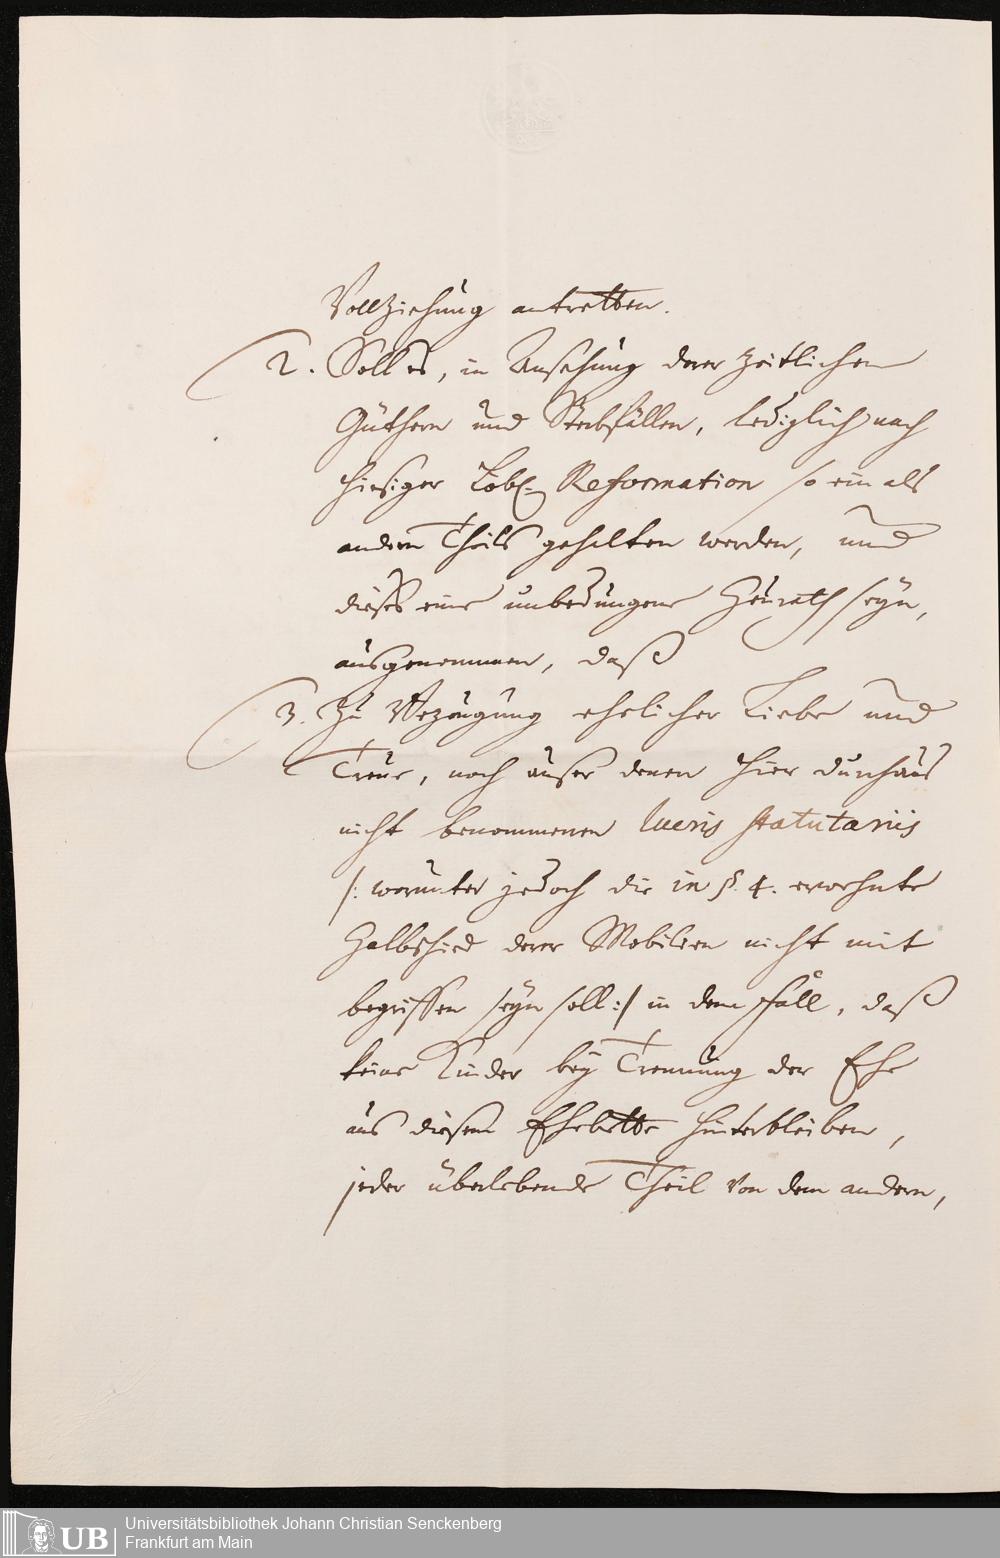 Vollziehung antretten.
2. Soll es, in Ansehung derer zeitlichen
Güthern und Sterbfällen, lediglich nach
hiesiger Löbl. Reformation so ein als
andern Theils gehalten werden, und
dieses eine unbedungene Heurath seyn,
ausgenommen, daß
3. Zu Bezeugung ehelicher Liebe und
Treue, noch auser denen hier durchaus
nicht benommenen lucris statutariis
/: worunter jedoch die in §. 4. erwehnte
Halbschied derer Mobilien nicht mit
begriffen seyn soll :/ in dem Fall, daß
keine Kinder bey Trennung der Ehe
aus diesem Ehebette hinterbleiben,
jeder überlebende Theil von dem andern,
UB
Universitätsbibliothek Johann Christian Senckenberg
Frankfurt am Main